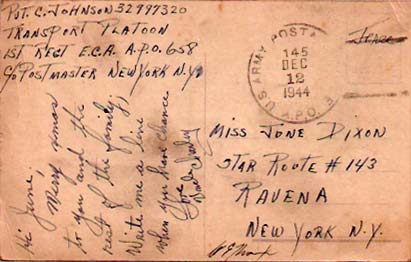 Pvt. C. Johnson 32997320
Transport Platoon
1st Regt E.C.A. A.P.O. 658
c/o Postmaster New York N.Y.
Hi June,
Merry Xmas
to you and the
rest of the family.
Write me a line
when you have chance
Love
U.S. ARMY POSTAL
145
DEC
12
1944
A.P.O.
Free
Miss June Dixon
Star Route # 143
Ravena
New York N.Y.